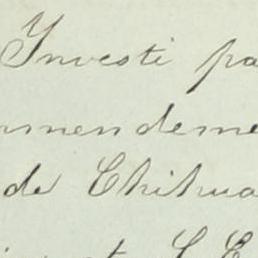 Investi pa
rmendeme
de Chihua